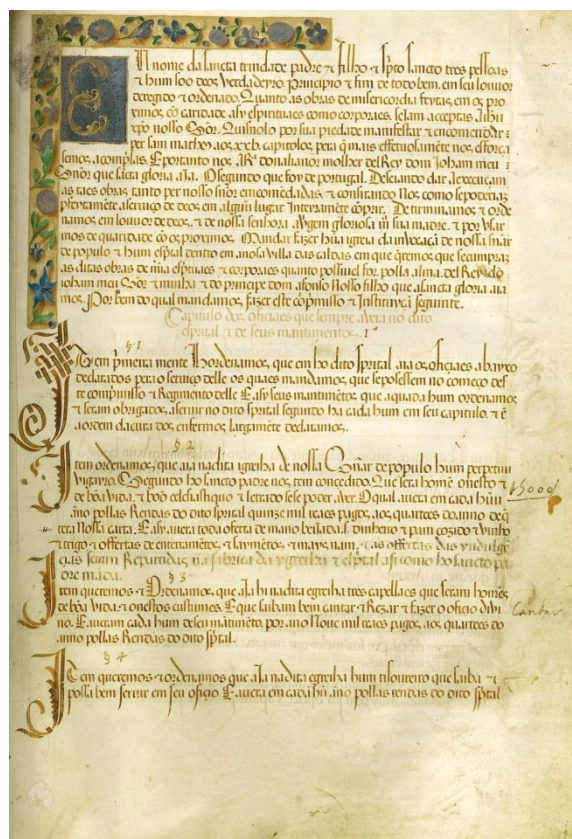 En nome da sancta trindade padre & filho & spto sancto tres pessoas
& hum soo deos verdadeyro. Principio & fim de todo bem. em seu louvor
deregido & ordenado. Quanto as obras de misericordia feytas, em os pro
ximos, cõ caridade, asy espirituaes como corporaes, sejam acceptas. A Jhũ
xpõ nosso Sõr. Quis nolo por sua piedade manifestar & encomendar:
per sam matheus aos xxb. capitolos, pera q̃ mais effetuosamẽte nos, esforça
semos, a complas. E portanto nos A Rª dona lianor molher del Rey dom Joham meu
Sñor que sãcta gloria aja. O segundo que foy de portugal. Desejando dar, a execuçam
as taes obras, tanto per nosso sñor encomẽdadas. & consirando Nos, como se podera
pfeytamẽte, a serviço de deos em algũu lugar Interamẽte cõprir. Determinamos, & orde
namos, em louvor de deos. & de nossa senhora a vgem gloriosa sua madre. & por usar
mos de quaridade cõ os proximos. Mandar fazer hũa igreja da invocaçã de nossa sñar
de populo & hum espital dentro em a nosa villa das caldas em que q̃remos que se cumpraz
as ditas obras de mĩa espituaes & corporaes quanto possivel for. polla alma. del Rey do
joham meu Sõr & minha & do principe dom afonso Nosso filho que a sancta gloria aja
mos. Por bem do qual mandamos, fazer este cõpmisso & Instituiçã seguinte.
Capitulo dos, oficiaes que sempre avera no dito
espital & de seus mantimentos. 1º
§ 1.
Item pmeira mente hordenamos, que em ho dito spital aja os oficiaes abayxo
declarados pera o serviço delle os quaes mandamos, que se posessem no começo des
te compmisso & Regimento delle E asy seus mantimẽtos que a quada hum ordenamos
& seram obrigados, a servir no dito spital segundo ha cada hum em seu capitulo. & ẽ
a ordem da cura dos enfermos largamẽte declaramos.
§ 2
Item ordenamos, que aja na dita igreiha de nossa Señar de populo hum perpetuu
vigayro. Segundo ho sancto padre nos tem concedido. Que sera homẽ onesto &
de bõa vida. & boõ eclesiastiquo & letrado se se poder, aver. O qual avera em cada hũu
ãno pollas Rendas do dito spital quinze mil reaes pagos, aos quartees do anno de q̃
tera Nossa carta. E asy avera toda oferta de mano beijada. s. dinheiro & pam cozido & vinho
& trigo & offertas de enteramẽtos, & saymẽtos, & mays nam. & as offertas das yndulgẽ
cias seram Repartidas, na fabrica da ygreiha & espital asi como ho sancto pa
dre mãda.
§ 3
Item queremos & Ordenamos, que aja hi na dita egreiha tres capellães que seram homẽs
de bõa vida. & onestos custumes. E que saibam bem cantar & Rezar & fazer o oficio divi
no. E averam cada hum de seu mãtimẽto. por ano Nove mil reaes pagos, aos quartees do
anno pollas Rendas do dito spital.
Cantar
§ 4
Item queremos & ordenamos que aja na dita egreiha hum tisoureiro que saiba &
possa bem servir em seu oficio E avera em cada hũ ãno pollas rendas do dito spital